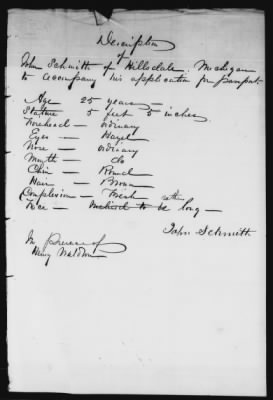 Description
of
John Schmitt of Hillsdale, Michigan
to accompany his application for passport.
Age 25 years —
Stature 5 feet 5 inches
Forehead — ordinary
Eyes — Hazel
Nose — ordinary
Mouth — do
Chin — Round
Hair — Brown
Complexion — Fresh
Face — inclined to be rather long —
John Schmitt
In presence of
Henry Waldron